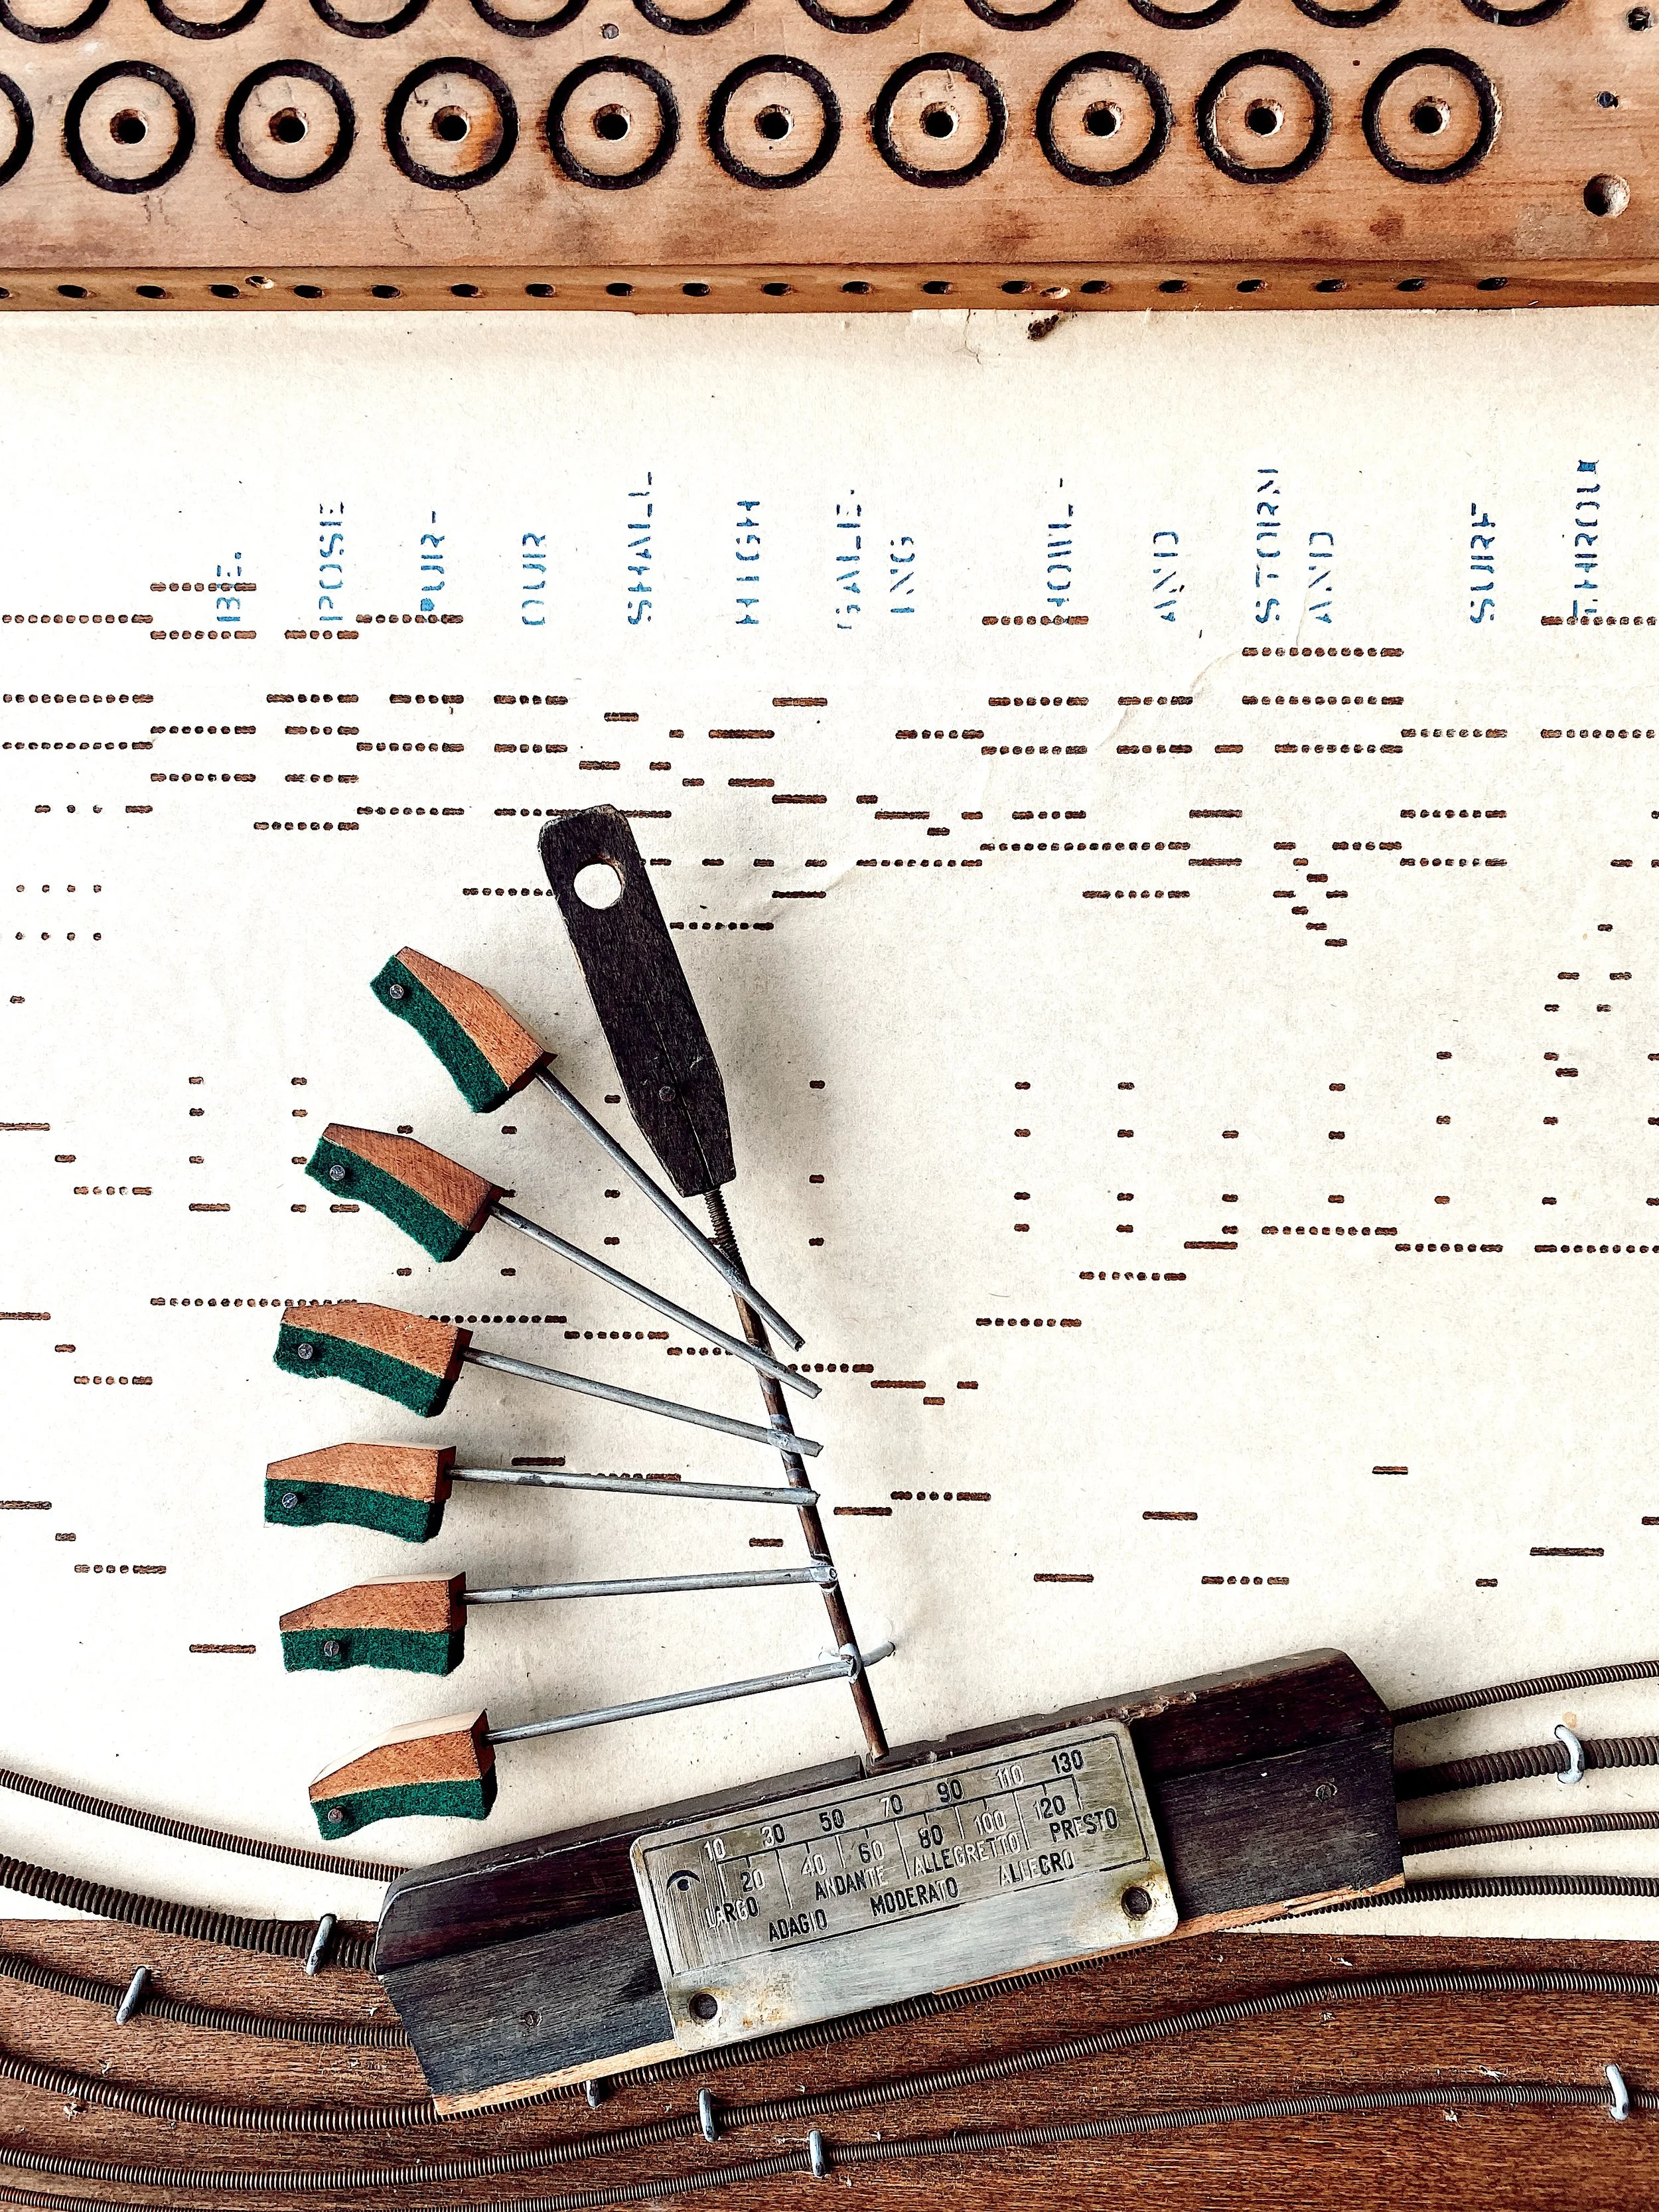 THROU
SURF
AND
STORM
AND
HOWL-
ING
GALE.
HIGH
SHALL
OUR
PUR-
POSE
BE.
10 30 50 70 90 110 130
20 40 60 80 100 120
LARGO ANDANTE ALLEGRETTO PRESTO
ADAGIO MODERATO ALLEGRO